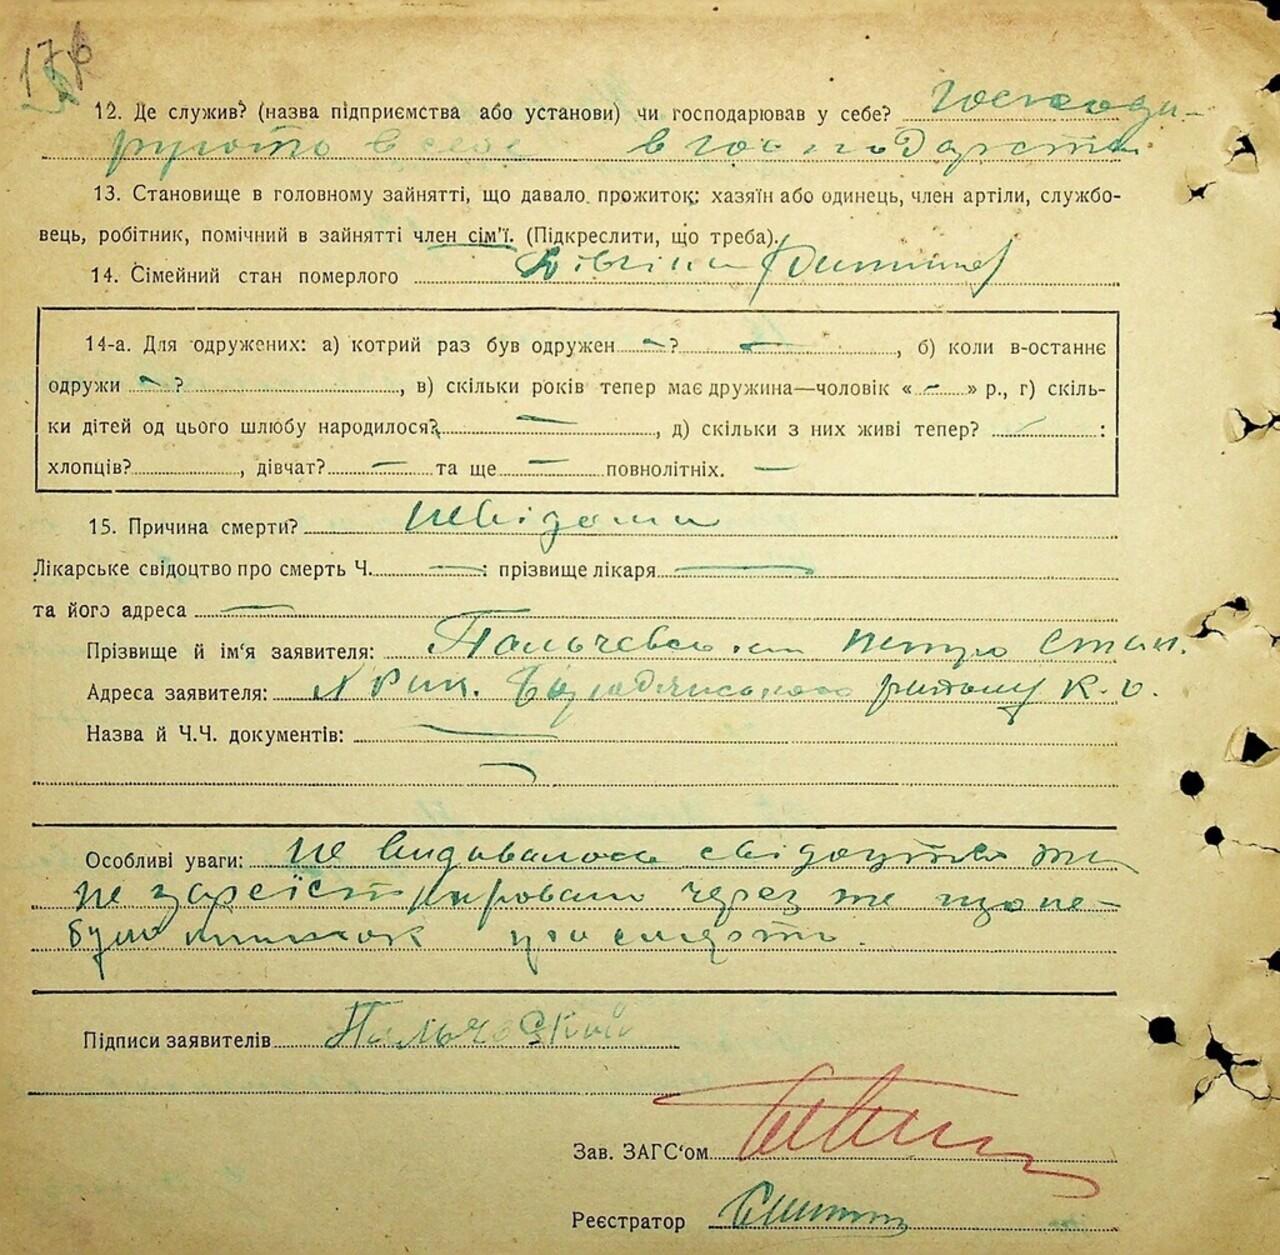 176
12. Де служив? (назва підприємства або установи) чи господарював у себе? господа-
в себе в господарстві
13. Становище в головному зайнятті, що давало прожиток: хазяїн або одинець, член артіли, службо-
вець, робітник, помічний в зайнятті член сім'ї. (Підкреслити, що треба).
14. Сімейний стан померлого
14-а. Для одружених: а) котрий раз був одружен — ? —, б) коли в-останнє
одружи — ?, в) скільки років тепер має дружина—чоловік « — » р., г) скіль-
ки дітей од цього шлюбу народилося? —, д) скільки з них живі тепер? — :
хлопців?, дівчат? — та ще — повнолітніх. —
15. Причина смерти? невідома
Лікарське свідоцтво про смерть Ч. — : прізвище лікаря —
та його адреса —
Прізвище й ім'я заявителя: Пальчевський Петро Стан.
Адреса заявителя: Бородянського району К. о.
Назва й Ч.Ч. документів: —
—
Особливі уваги: не видавалось свідоцтво та
не зареїстрировано через те що не-
було книжок про смерть.
Підписи заявителів Пальчевский
Зав. ЗАГС'ом
Реєстратор